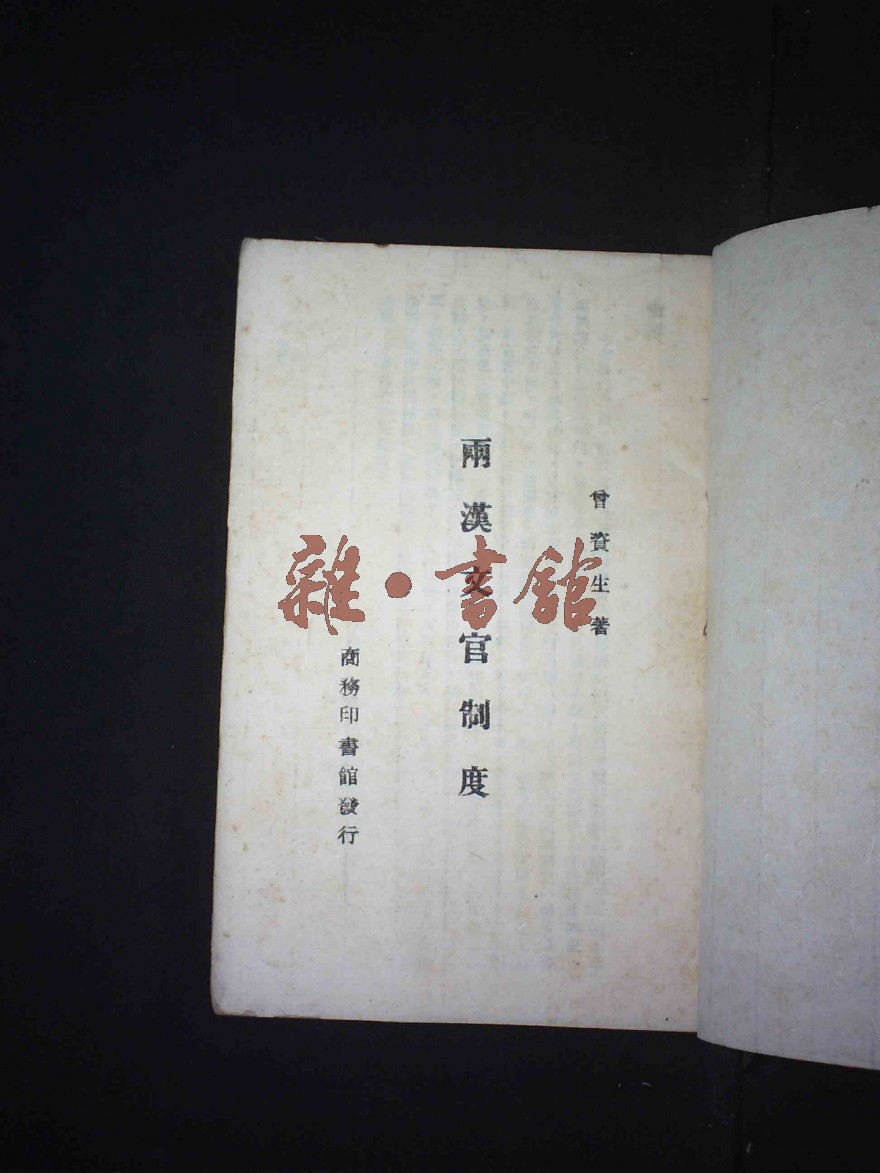 曾資生著
兩漢文官制度
商務印書館發行
雜·書館